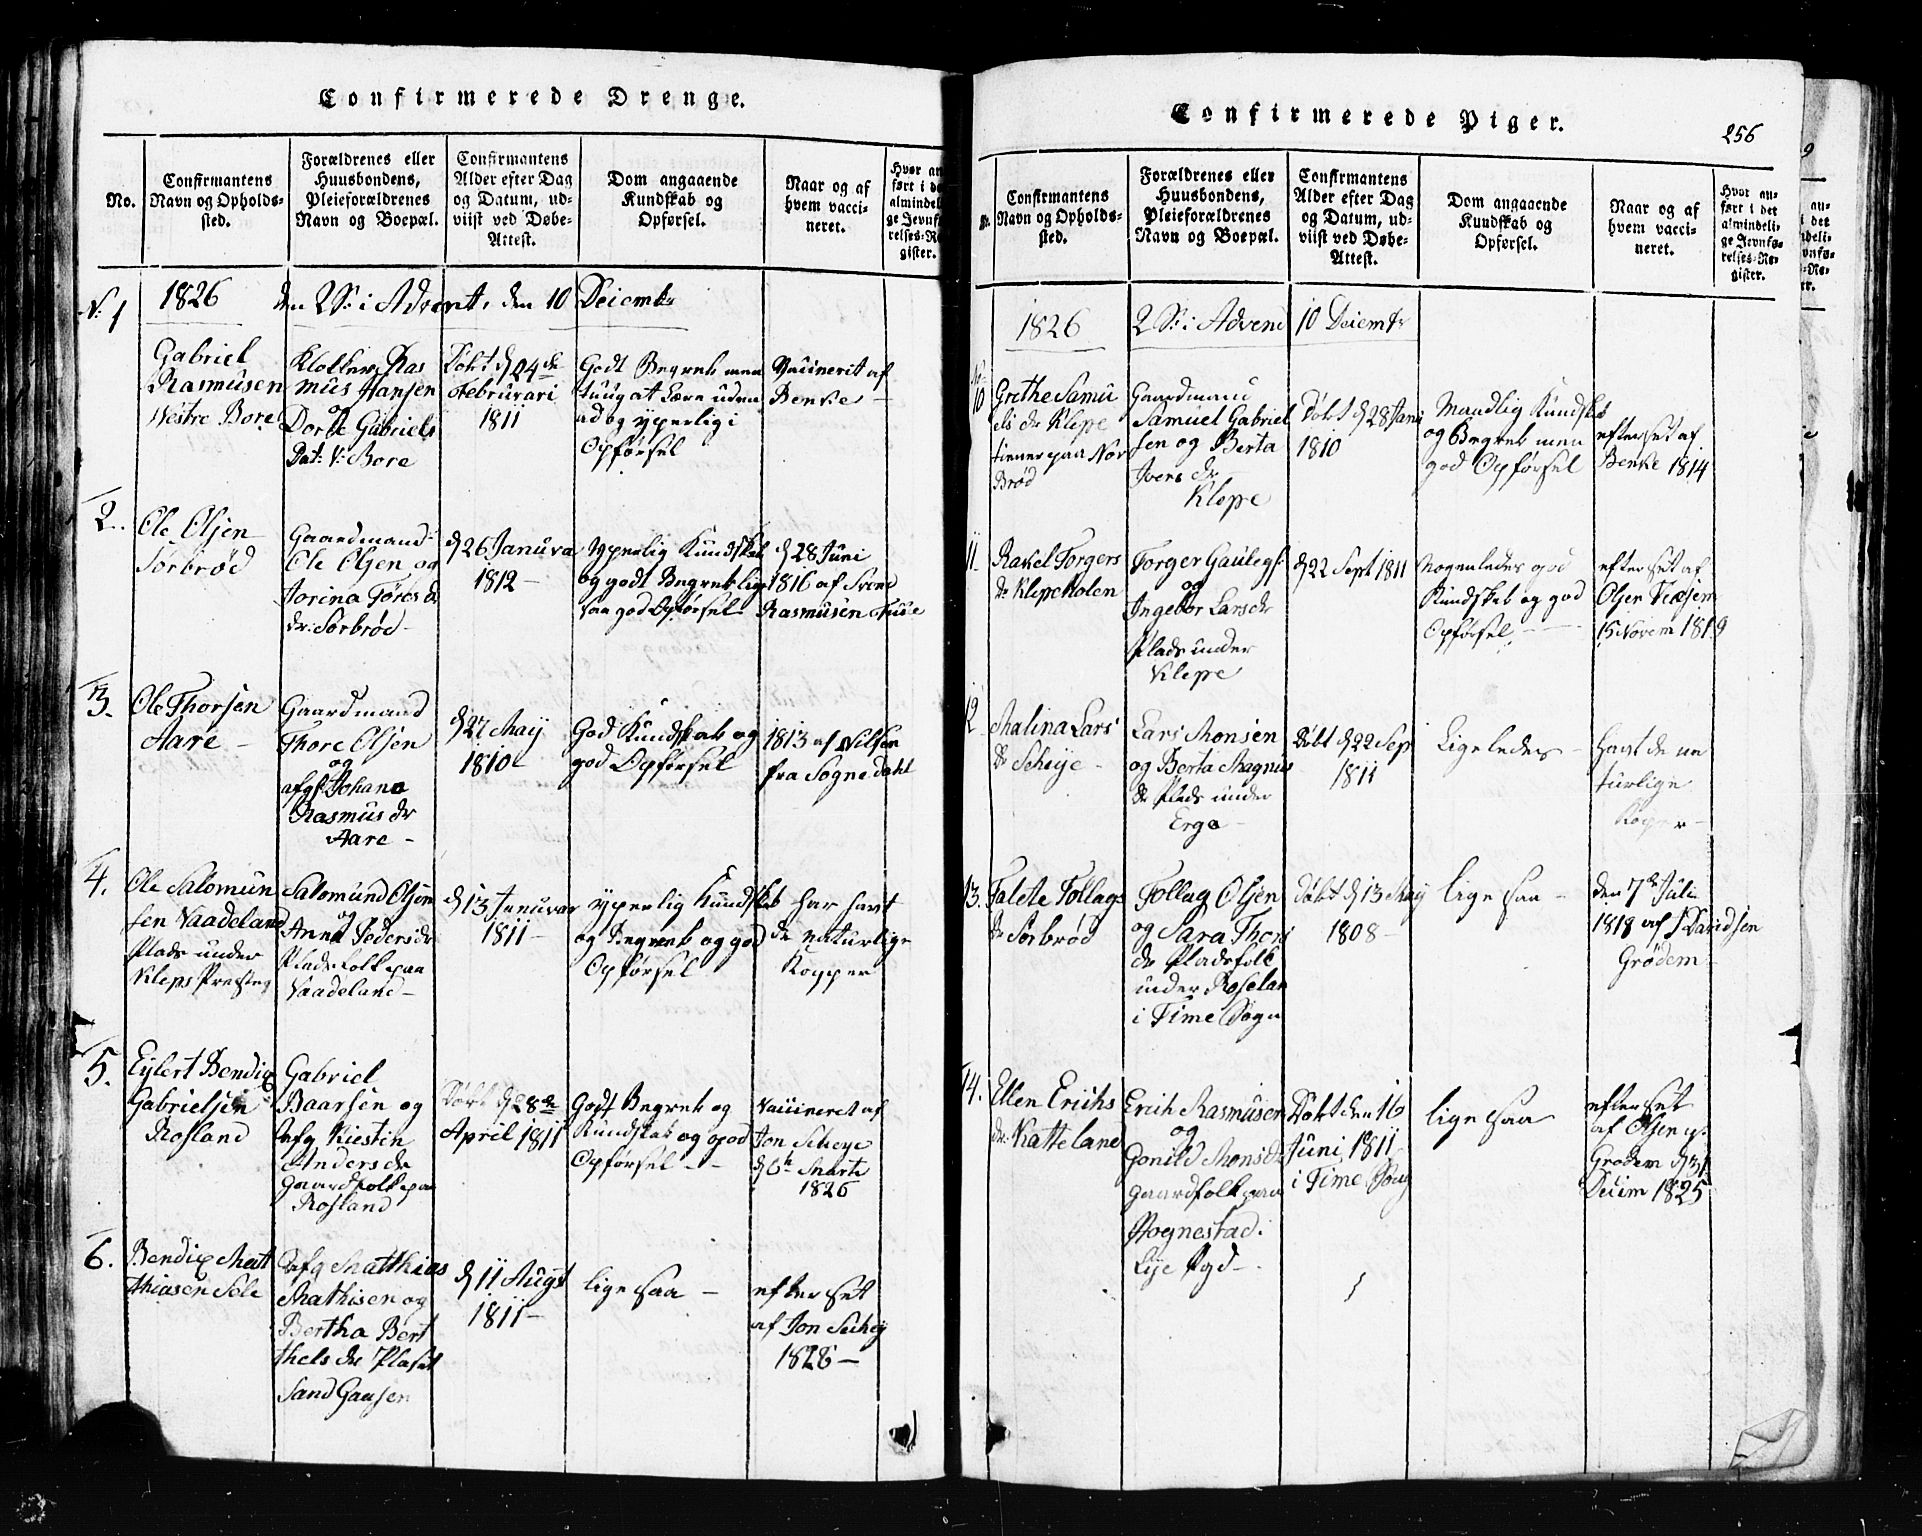 Confirmerede Drenge.
No.
Confirmantens
Navn og Opholds-
sted.
Forældrenes eller
Huusbondens,
Pleieforældrenes
Navn og Boepæl.
Confirmantens
Alder efter Dag
og Datum, ud-
viist ved Døbe-
Attest.
Dom angaaende
Kundskab og
Opførsel.
Naar og af
hvem vacci-
neret.
Hvor an
ført i de
almindel
ge Jevnf
relses-R
gister.
1826 den 2 S: i Advent, den 10 Deiembr
N: 1
Gabriel
Rasmusen
Vestre Bore
Klokker Ras
mus Hansen
og
Dorte Gabriels
Dat: V: Bore
Døbt d 24 de
Februari
1811
Godt Begreb men
tuug at Lære uden
ad og yperlig i
Opførsel
Vauinerit af
Benke
2.
Ole Olsen
Sørbrød
Gaardmand
Ole Olsen og
Jorina Tøres d
dr: Sørbrød
d 26 Januva
1812 -
Yperlig Kundskab
og godt Begreb lige
saa god Opførsel
d 28 Juni
1816 af Svend
Rasmusen Hue
3.
Ole Thorsen
Aare -
Gaardmand
Thore Olsen
og
afg: Johana
Rasmus dr
Aare -
d 27 May
1810 -
God Kundskab og
god Opførsel
1813 af Nilsen
fra Sognedahl
4.
Ole Salomun
sen Vaadeland
Plads under
Kleps Presteg
Salomund Olsen
og
Anna Peders dr
Pladsfolk paa
Vaadeland -
d 13 Januvar
1811 -
yperlig Kundskab
og Begreb og god
Opførsel
har havt
de naturlige
Kopper
5.
Eylert Bendix
Gabrielsen
Rosland
Gabriel
Baarsen og
afg Kiestin
Anders dr
Gaardfolk paa
Rosland
Døbt d 28 de
April 1811
Godt Begreb og
Kundskab og god
Opførsel - -
Vauineret af
Jon Scheye
d 6 te Marts
1826
6.
Bendix Mat
thiasen Sele
afg Matthias
Mathisen og
Bertha Bert
thels dr Plasset
Sand Gausen
d 11 Augst
1811 -
lige saa -
efter set
af Jon Schey
1826 -
Confirmerede Piger.
256
Nr.
Confirmantens
Navn og Opholds-
sted.
Forældrenes eller
Huusbondens,
Pleieforældrenes
Navn og Boepæl.
Confirmantens
Alder efter Dag
og Datum, ud-
viist ved Døbe-
Attest.
Dom angaaende
Kundskab og
Opførsel.
Naar og af
hvem vacci-
neret.
Hvor an-
ført i det
almindeli-
ge Jevnfø-
relses-Re-
gister.
1826 2 S: i Advend 10 Deiembr
No
10
Grethe Samu
els dr Klepe
tiener paa Nor
Brød
Gaardmand
Samuel Gabriel
sen og Berta
Ivers dr
Klepe
Døbt d 28 Jani
1810
Maadlig Kundskb
og Begreb men
god Opførsel
efter set af
Benke 1814
11
Rakel Torgers
dr Klepeholen
Torger Gaulegs:
og
Ingebor Lars dr
Plads under
Klepe
d 22 Sept 1811
Nogenledes god
Kundskab og god
Opførsel -
efter set af
Olsen
15 Novem 1819
12
Malina Lars
dr Scheye -
Lars Monsen
og Berta Magnus
dr Plads under
Erga -
Døbt d 22 Sep
1811
Ligeledes -
havt de na
turlige
Koper -
13.
Talete Tollags
dr Sørbrød
Tollag Olsen
og Sara Thors
dr Pladsfolk
under Roselan
i Time Sogn
Døbt d 13 May
1808 -
lige saa -
den 7de Juli
1818 af J Davidsen
Grødem
14.
Ellen Erichs
dr: Katteland
Erich Rasmusen
og
Gonild Mons dr
Gaardfolk paa
Rognestad
Lye Sgd -
Døbt den 16
Juni 1811
i Time Sogn
lige saa
efter set
af Olsen p.
Grodem d 31
Deiem 1825